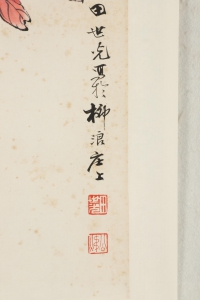 田世光写於柳浪庄上